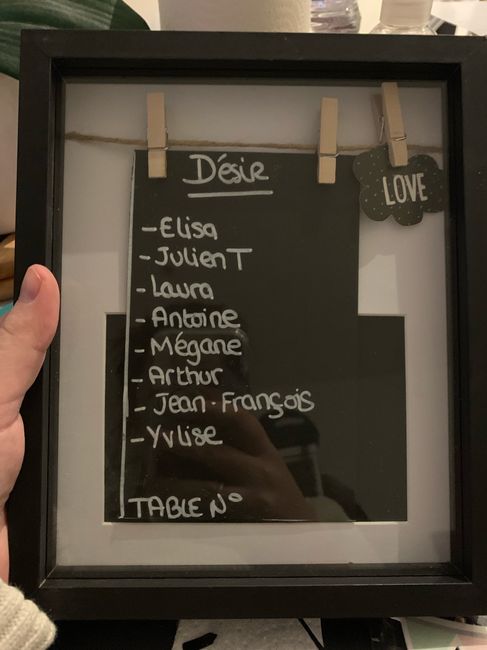 Désir
LOVE
-Elisa
-Julien T
-Laura
-Antoine
-Mégane
-Arthur
-Jean-François
-Yvlise
TABLE N°